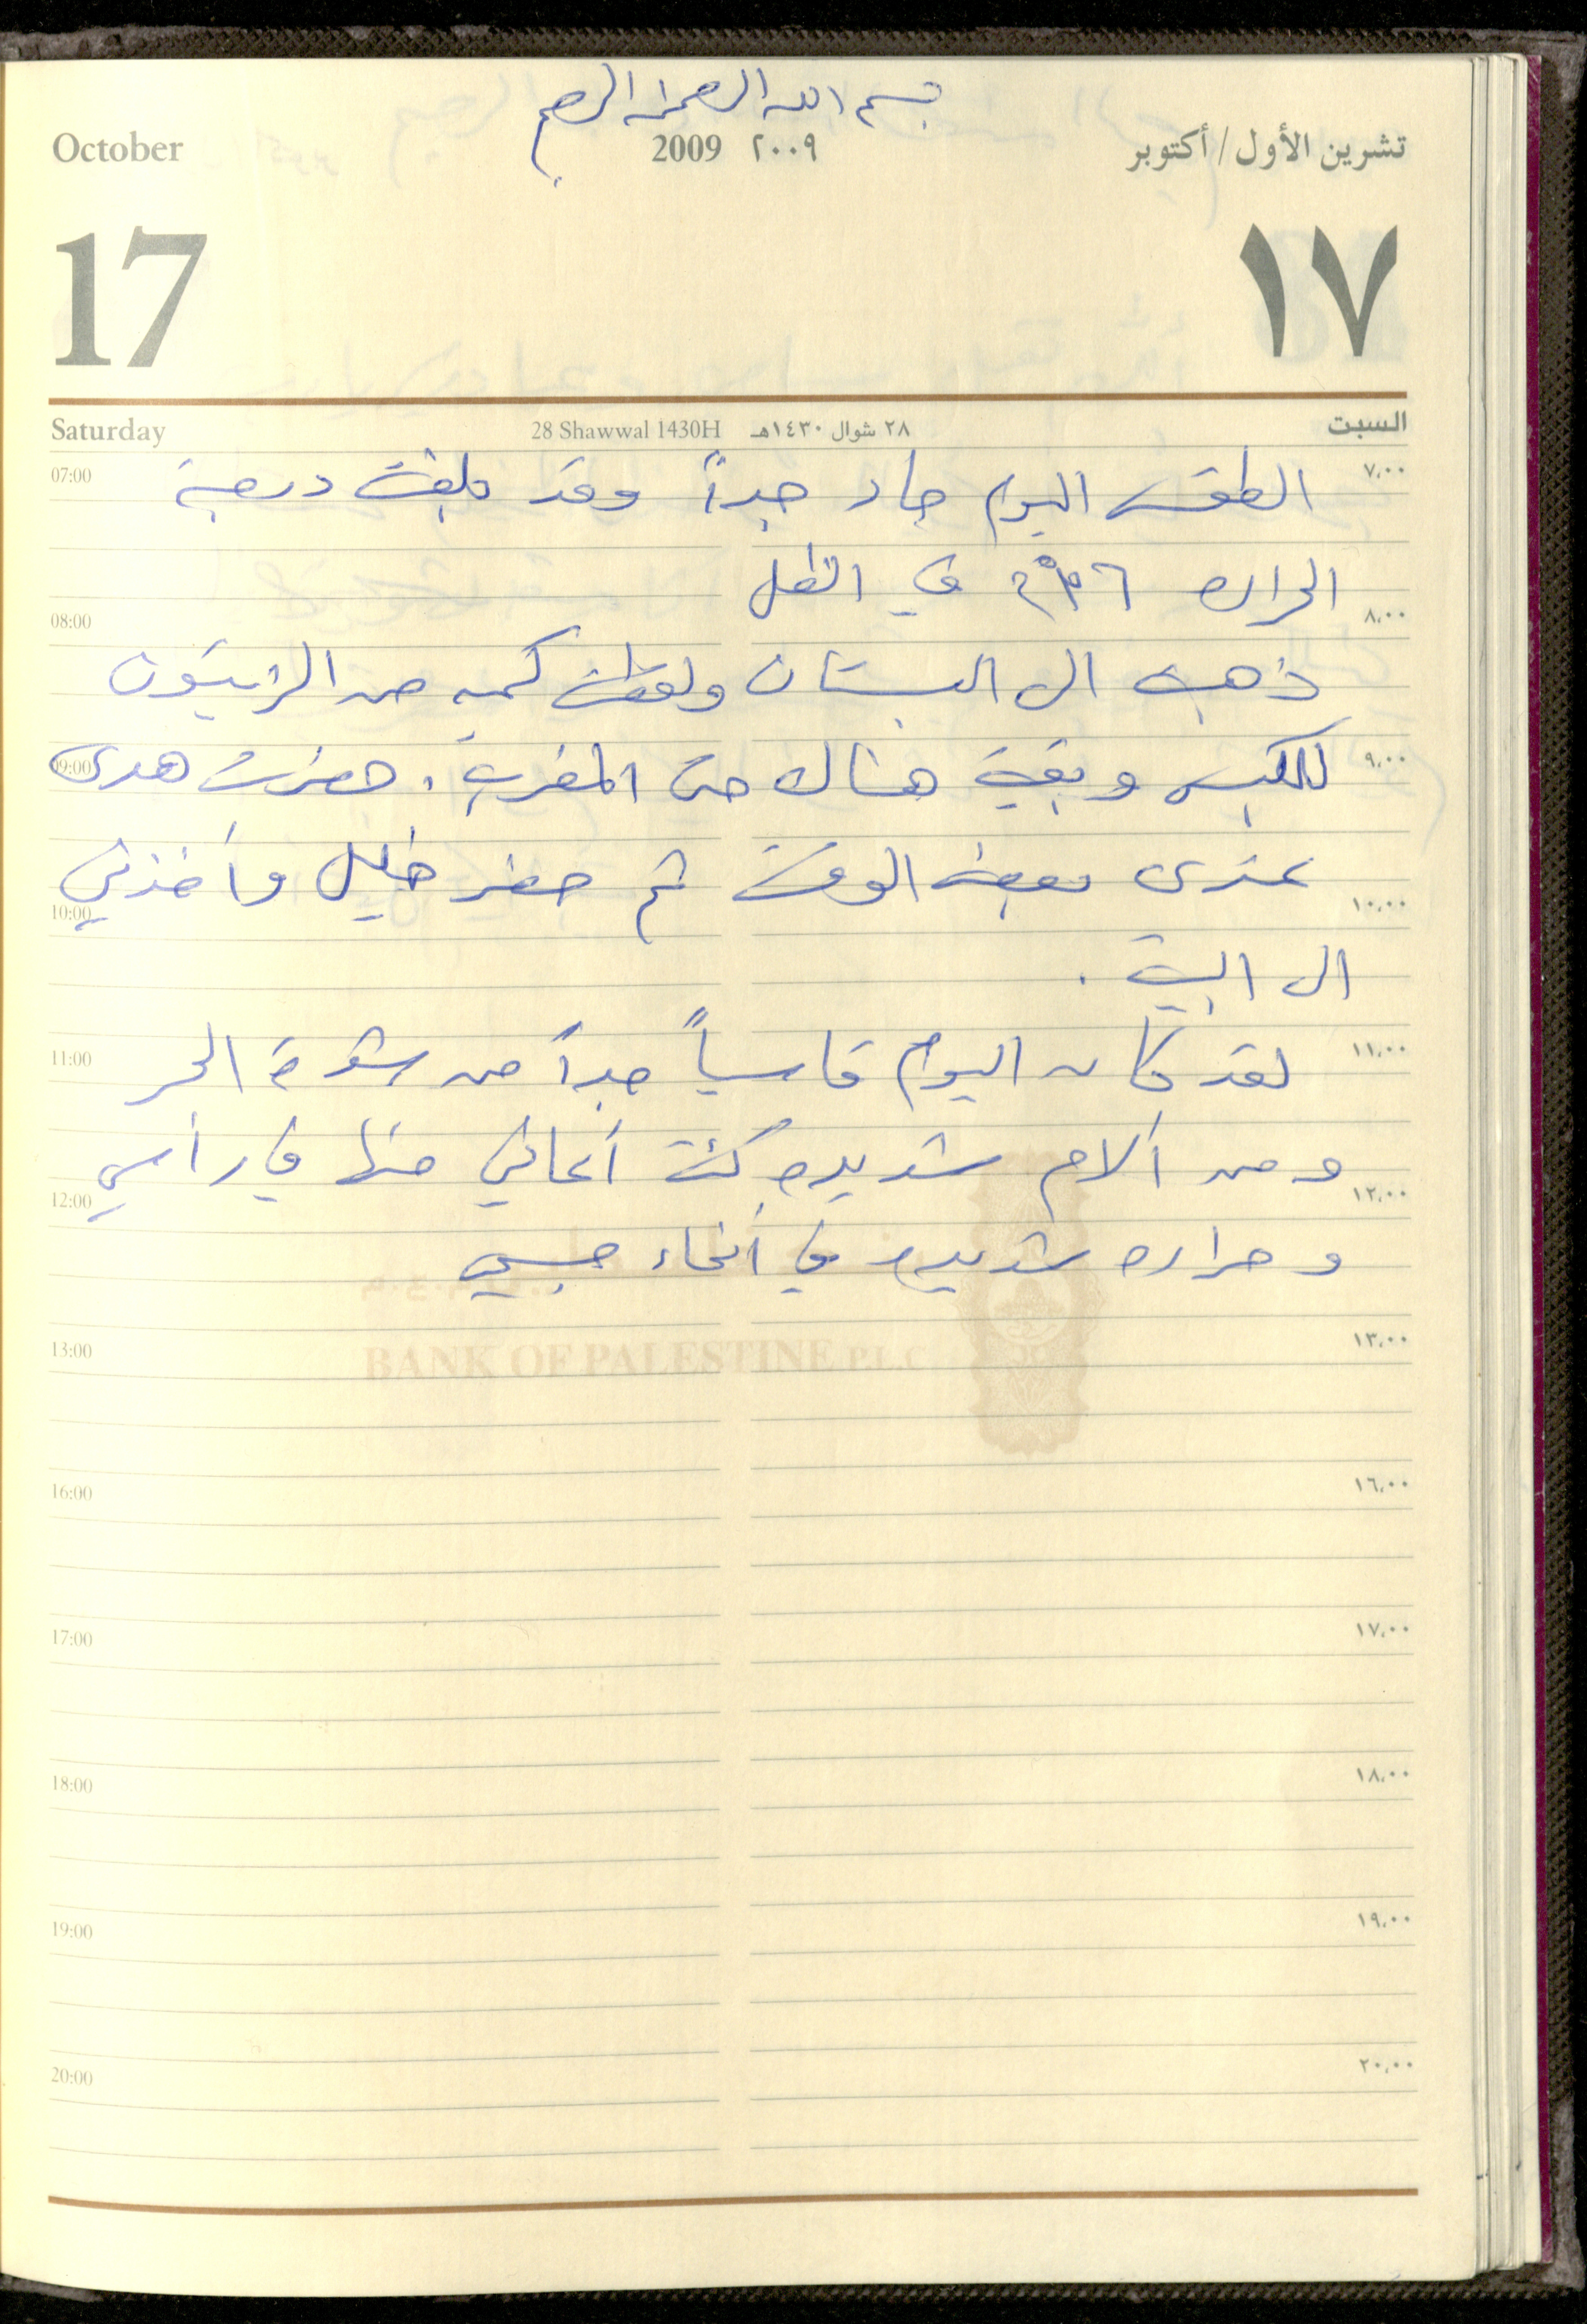 بسم الله الرحمن الرحيم
October 2009 ٢٠٠٩ تشرين الأول/أكتوبر
17 ١٧
Saturday 28 Shawwal 1430H ٢٨ شوال ١٤٣٠هـ السبت
07:00 الطقس اليوم حار جداً وقد بلغت درجة ٧,٠٠
الحراره في الظل
08:00 ٨,٠٠
ذهبت الى البستان ولقطت كميه من الزيتون
09:00 للكبس وبقيت هناك حتى المغرب . حضرت هدى ٩,٠٠
عندى بعض الوقت ثم حضر خليل وأخذني
10:00 ١٠,٠٠
الى البيت .
11:00 لقد كان اليوم قاسياً جداً من شدة الحر ١١,٠٠
ومن آلام شديده كنت أعاني منها في رأسي
12:00 ١٢,٠٠
وحراره شديده في أنحاء جسمي
13:00 ١٣,٠٠
BANK OF PALESTINE P.L.C
16:00 ١٦,٠٠
17:00 ١٧,٠٠
18:00 ١٨,٠٠
19:00 ١٩,٠٠
20:00 ٢٠,٠٠